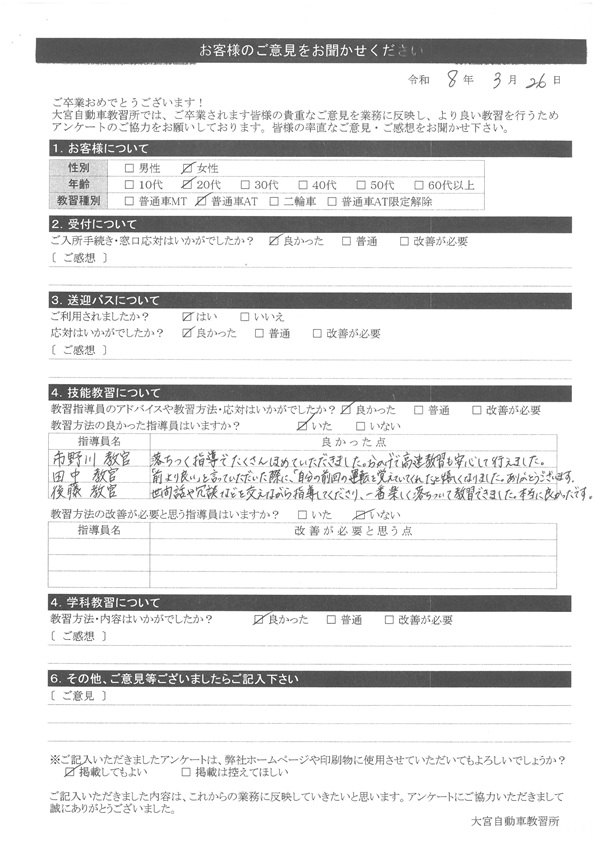 お客様のご意見をお聞かせください
令和 8 年 3 月 26 日
ご卒業おめでとうございます！
大宮自動車教習所では、ご卒業されます皆様の貴重なご意見を業務に反映し、より良い教習を行うため
アンケートのご協力をお願いしております。皆様の率直なご意見・ご感想をお聞かせ下さい。
1. お客様について
性別 □ 男性 ☑ 女性
年齢 □ 10代 ☑ 20代 □ 30代 □ 40代 □ 50代 □ 60代以上
教習種別 □ 普通車MT ☑ 普通車AT □ 二輪車 □ 普通車AT限定解除
2. 受付について
ご入所手続き・窓口応対はいかがでしたか？ ☑ 良かった □ 普通 □ 改善が必要
〔 ご感想 〕
3. 送迎バスについて
ご利用されましたか？ ☑ はい □ いいえ
応対はいかがでしたか？ ☑ 良かった □ 普通 □ 改善が必要
〔 ご感想 〕
4. 技能教習について
教習指導員のアドバイスや教習方法・応対はいかがでしたか？ ☑ 良かった □ 普通 □ 改善が必要
教習方法の良かった指導員はいますか？ ☑ いた □ いない
指導員名 良かった点
市野川 教官 落ちつく指導でたくさんほめていただきました。おかげで高速教習も安心して行えました。
田中 教官 「前より良い」と言っていただいた際に、自分の前回の運転を覚えていてくれたと嬉しくなりました。ありがとうございます。
後藤 教官 世間話や冗談などを交えながら指導してくださり、一番楽しく落ちついて教習できました。本当に良かったです。
教習方法の改善が必要と思う指導員はいますか？ □ いた ☑ いない
指導員名 改善が必要と思う点
4. 学科教習について
教習方法・内容はいかがでしたか？ ☑ 良かった □ 普通 □ 改善が必要
〔 ご感想 〕
6. その他、ご意見等ございましたらご記入下さい
〔 ご意見 〕
※ご記入いただきましたアンケートは、弊社ホームページや印刷物に使用させていただいてもよろしいでしょうか？
☑ 掲載してもよい □ 掲載は控えてほしい
ご記入いただきました内容は、これからの業務に反映していきたいと思います。アンケートにご協力いただきまして
誠にありがとうございました。
大宮自動車教習所